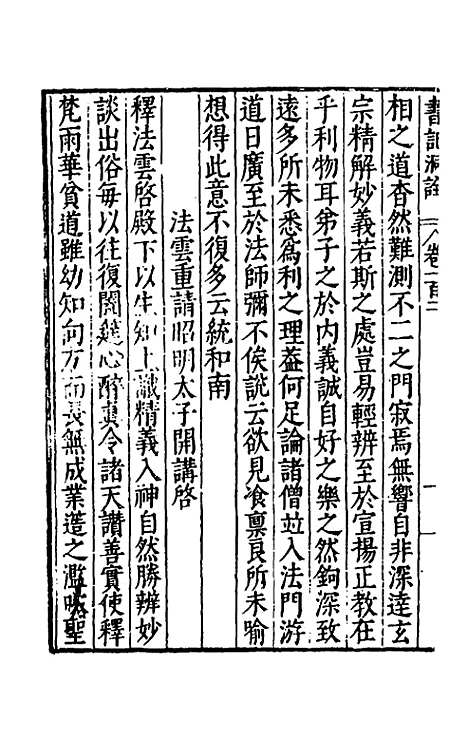 書記洞詮 卷一百二
相之道杳然難測不二之門寂焉無響自非深達玄
宗精解妙義若斯之處豈易輕辨至於宣揚正教在
乎利物耳弟子之於內義誠自好之樂之然鉤深致
遠多所未悉為利之理葢何足論諸僧竝入法門游
道日廣至於法師彌不俟說云欲見飡稟良所未喻
想得此意不復多云統和南
法雲重請昭明太子開講啓
釋法雲啓殿下以生知上識精義入神自然勝辨妙
談出俗每以往復闇𨗳心醉真令諸天讚善實使釋
梵雨華貧道雖幼知向方而長無成業遂之濫吹聖